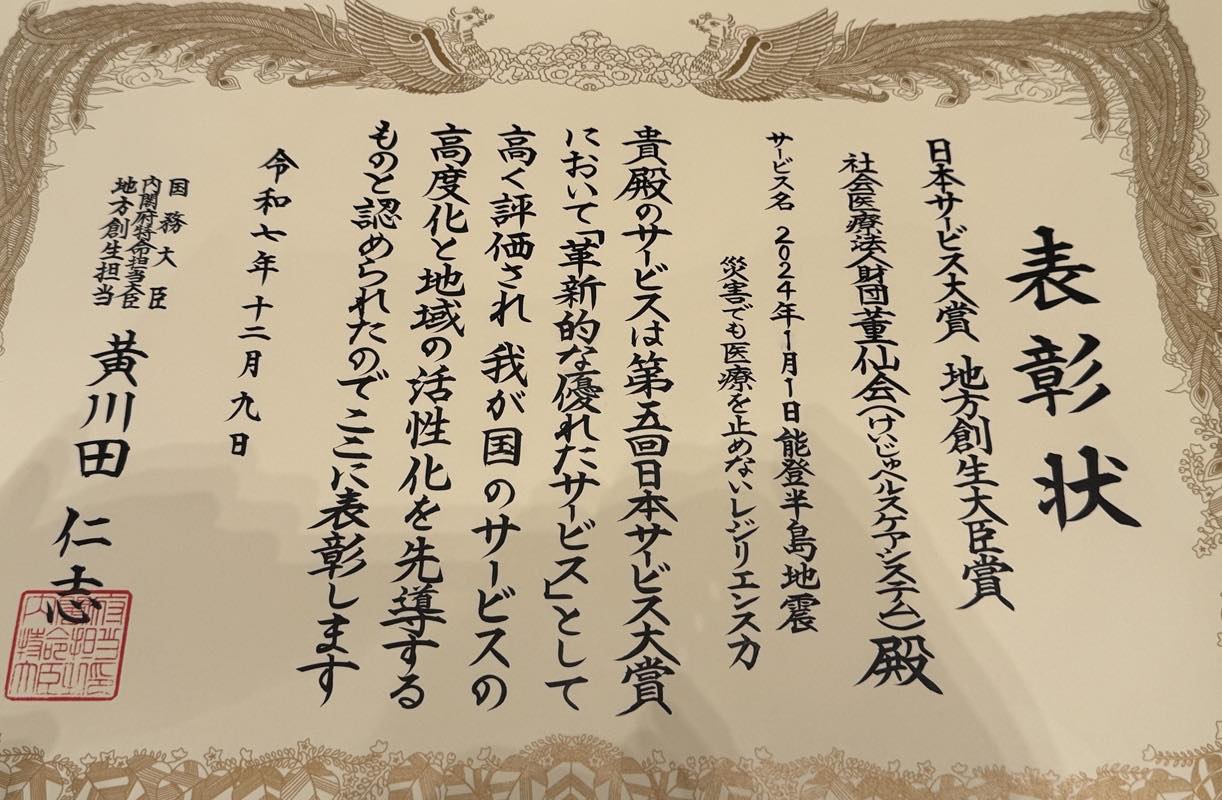 表彰状
日本サービス大賞 地方創生大臣賞
社会医療法人財団董仙会(けいじゅヘルスケアシステム)殿
サービス名 2024年1月1日能登半島地震
災害でも医療を止めないレジリエンス力
貴殿のサービスは第五回日本サービス大賞
において「革新的な優れたサービス」として
高く評価され我が国のサービスの
高度化と地域の活性化を先導する
ものと認められたのでここに表彰します
令和七年十二月九日
国務大臣
内閣府特命担当大臣
地方創生担当
黄川田仁志